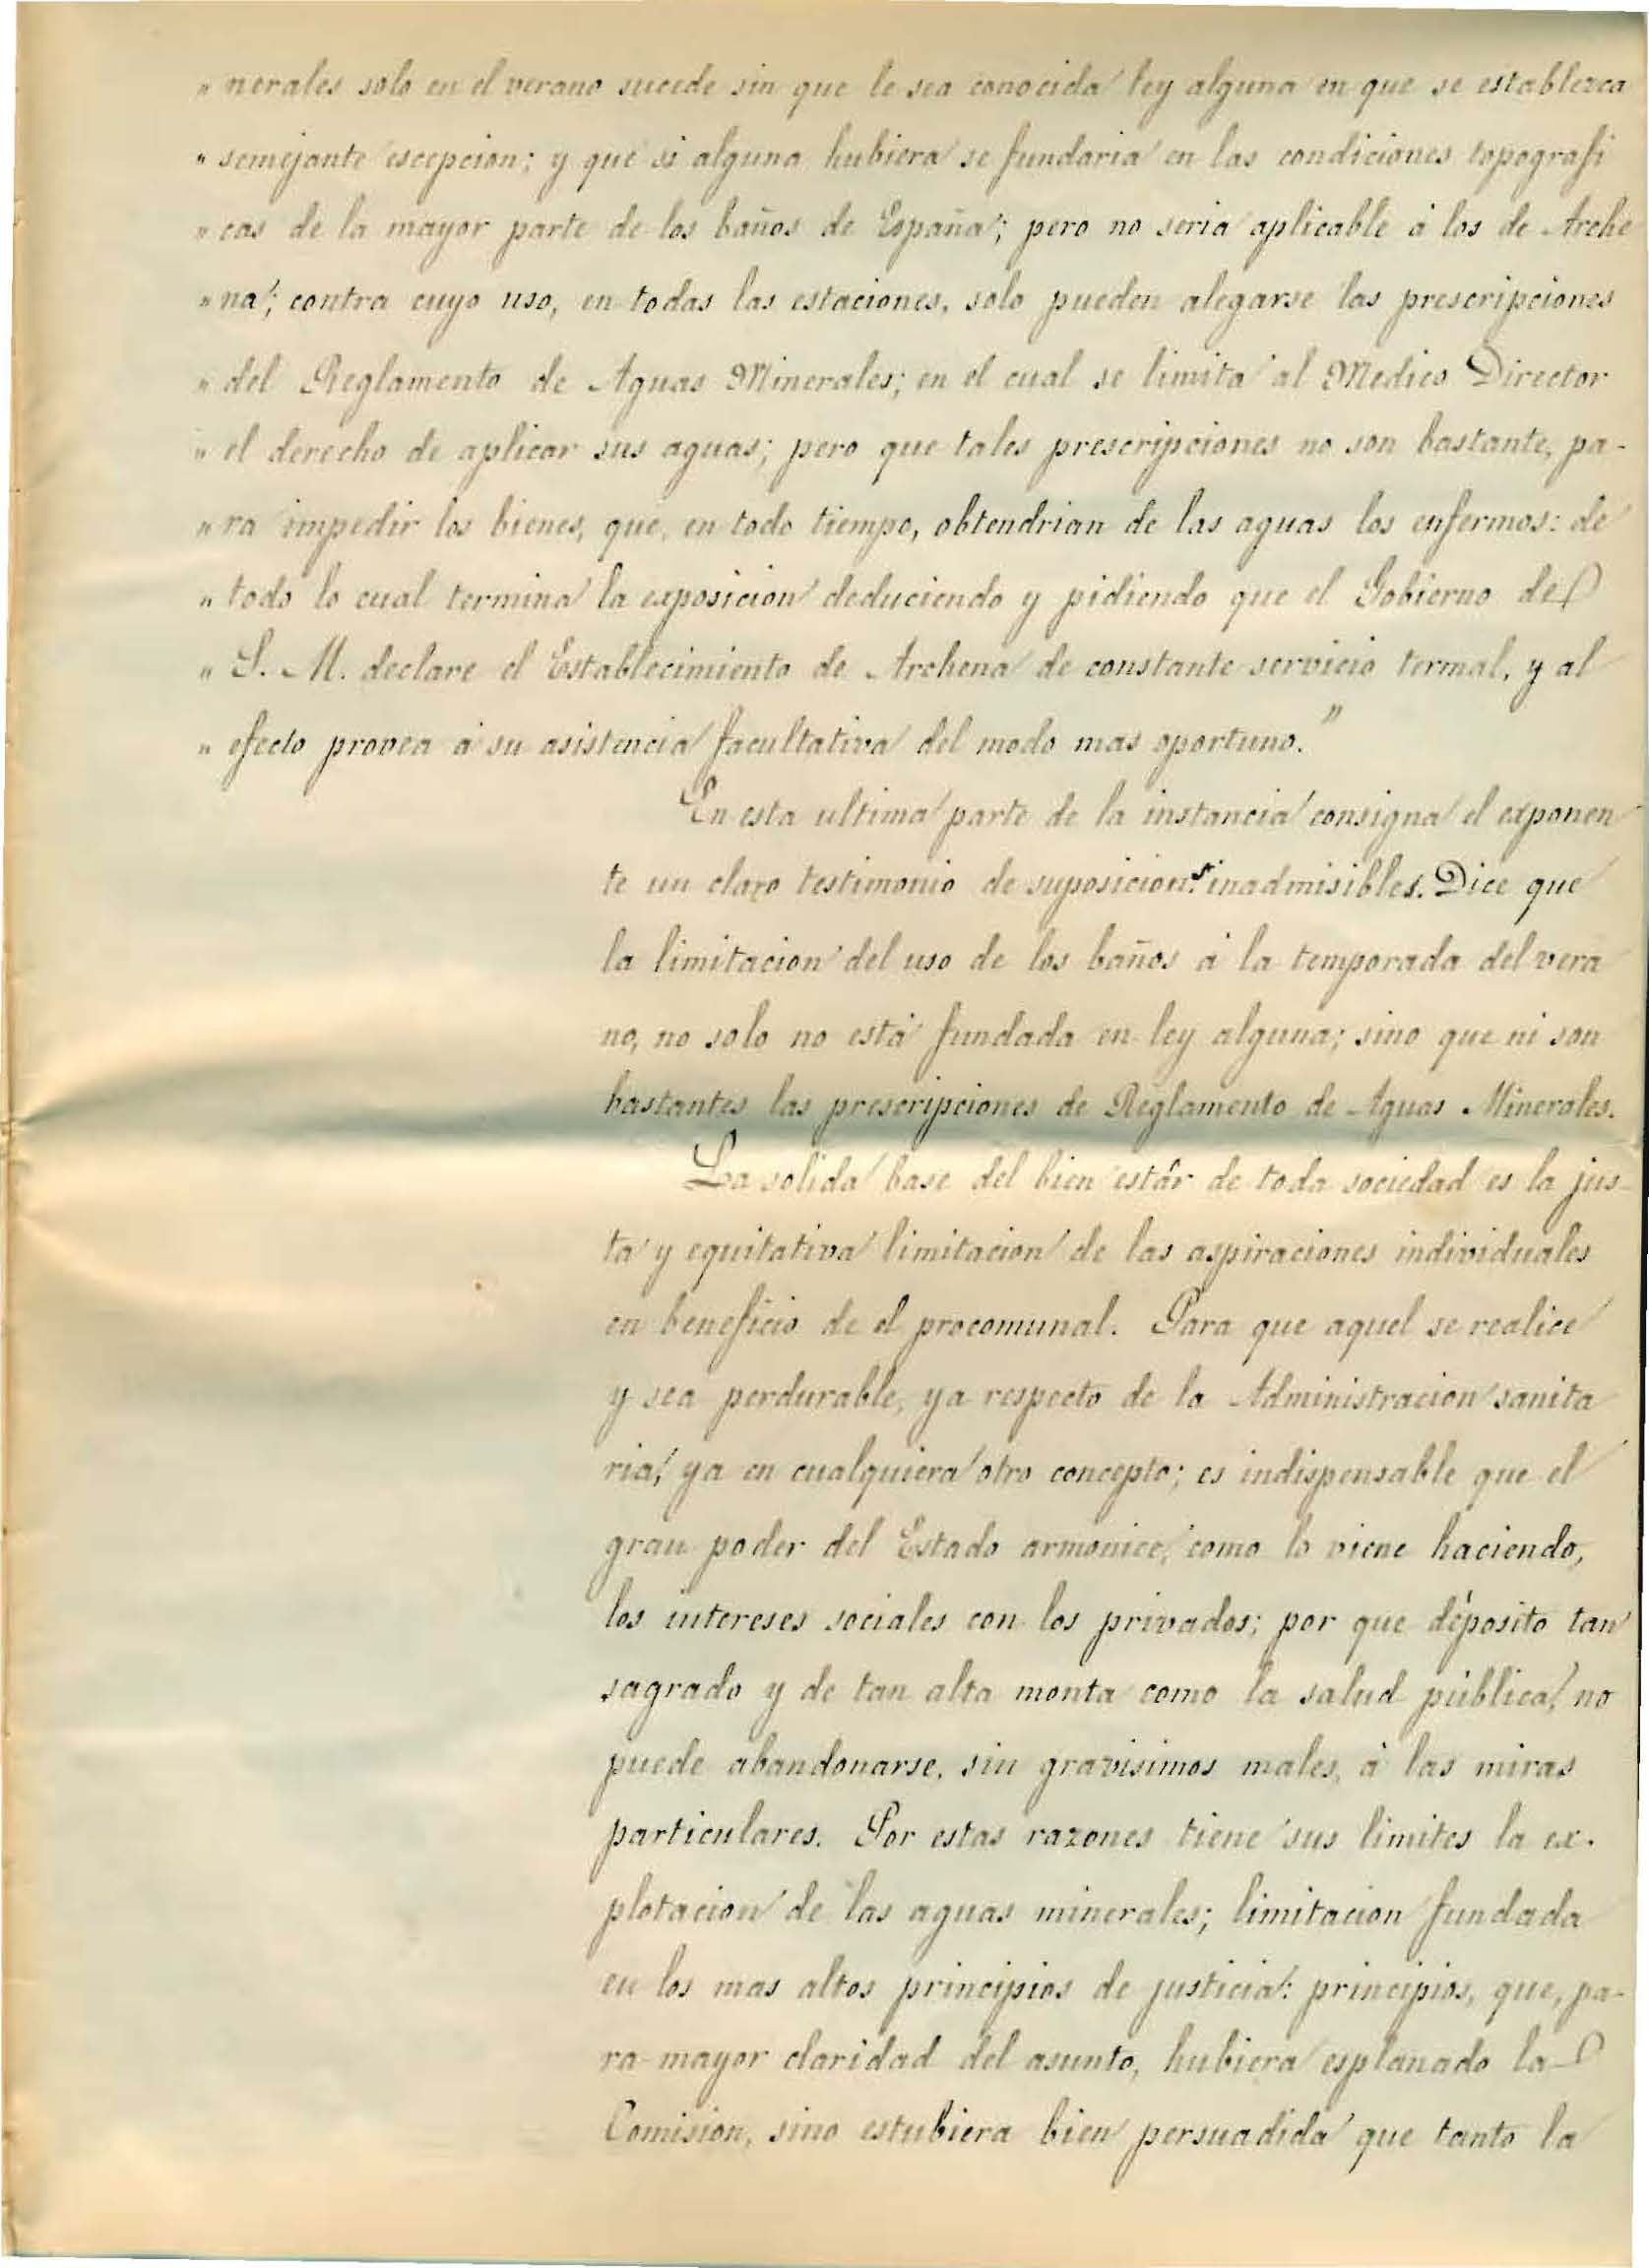 " nerales solo en el verano sucede sin que le sea conocida ley alguna en que se establezca
" semejante escepcion; y que si alguna hubiera se fundaria en las condiciones topografi
" cas de la mayor parte de los baños de España; pero no seria aplicable á los de Arche
" na; contra cuyo uso, en todas las estaciones, solo pueden alegarse las prescripciones
" del Reglamento de Aguas Minerales; en el cual se limita al Medico Director
" el derecho de aplicar sus aguas; pero que tales prescripciones no son bastante, pa-
" ra impedir los bienes, que, en todo tiempo, obtendrian de las aguas los enfermos: de
" todo lo cual termina la exposicion deduciendo y pidiendo que el Gobierno de
" S. M. declare el Establecimiento de Archena de constante servicio termal, y al
" efecto provea á su asistencia facultativa del modo mas oportuno."
En esta ultima parte de la instancia consigna el exponen
te un claro testimonio de suposicions inadmisibles. Dice que
la limitacion del uso de los baños á la temporada del vera
no, no solo no está fundada en ley alguna; sino que ni son
bastantes las prescripciones de Reglamento de Aguas Minerales.
La solida base del bien estár de toda sociedad es la jus-
ta y equitativa limitacion de las aspiraciones individuales
en beneficio de el procomunal. Para que aquel se realice
y sea perdurable, ya respecto de la Administracion sanita
ria, ya en cualquiera otro concepto; es indispensable que el
gran poder del Estado armonice, como lo viene haciendo,
los intereses sociales con los privados; por que déposito tan
sagrado y de tan alta monta como la salud pública, no
puede abandonarse, sin gravisimos males, á las miras
particulares. Por estas razones tiene sus limites la ex-
plotacion de las aguas minerales; limitacion fundada
en los mas altos principios de justicia: principios, que, pa-
ra mayor claridad del asunto, hubiera esplanado la
Comision, sino estubiera bien persuadida que tanto la